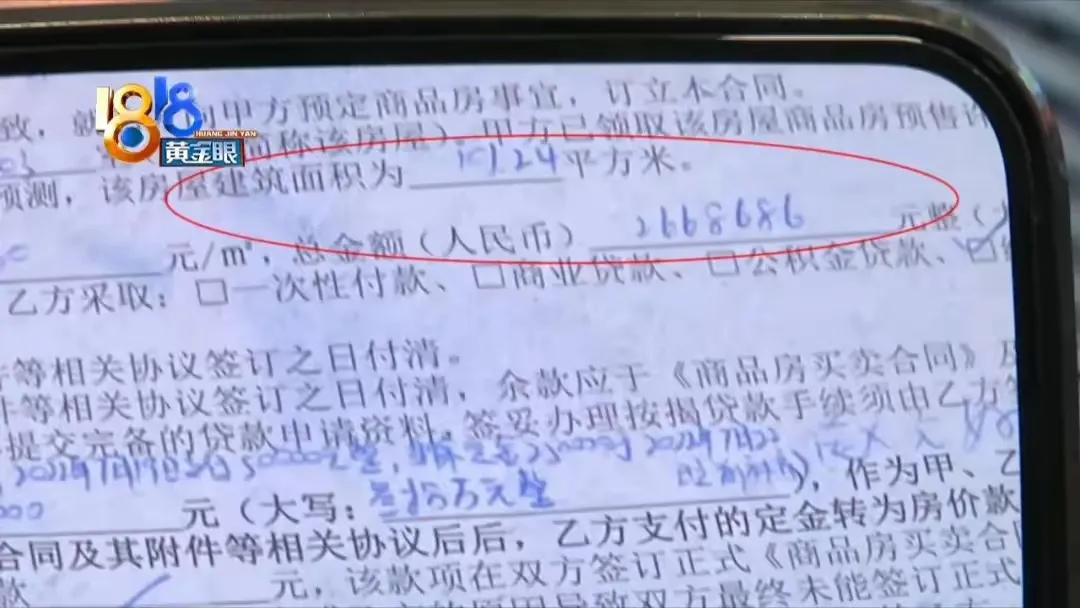 1818
HUANG JIN YAN
黄金眼
致，就 向甲方预定商品房事宜，订立本合同。
简称该房屋）。甲方已领取该房屋商品房预售许
预测，该房屋建筑面积为 101.24 平方米。
元/m²，总金额（人民币） 2668686 元整（大
乙方采取：☐一次性付款、☐商业贷款、☐公积金贷款、☑
等相关协议签订之日付清。
件等相关协议签订之日付清，余款应于《商品房买卖合同》及
提交完备的贷款申请资料。签妥办理按揭贷款手续须由乙方
000 元（大写：叁拾万元整 ），作为甲、乙
合同及其附件等相关协议后后，乙方支付的定金转为房价款
款 元，该款项在双方签订正式《商品房买卖合同
原因导致双方最终未能签订正式